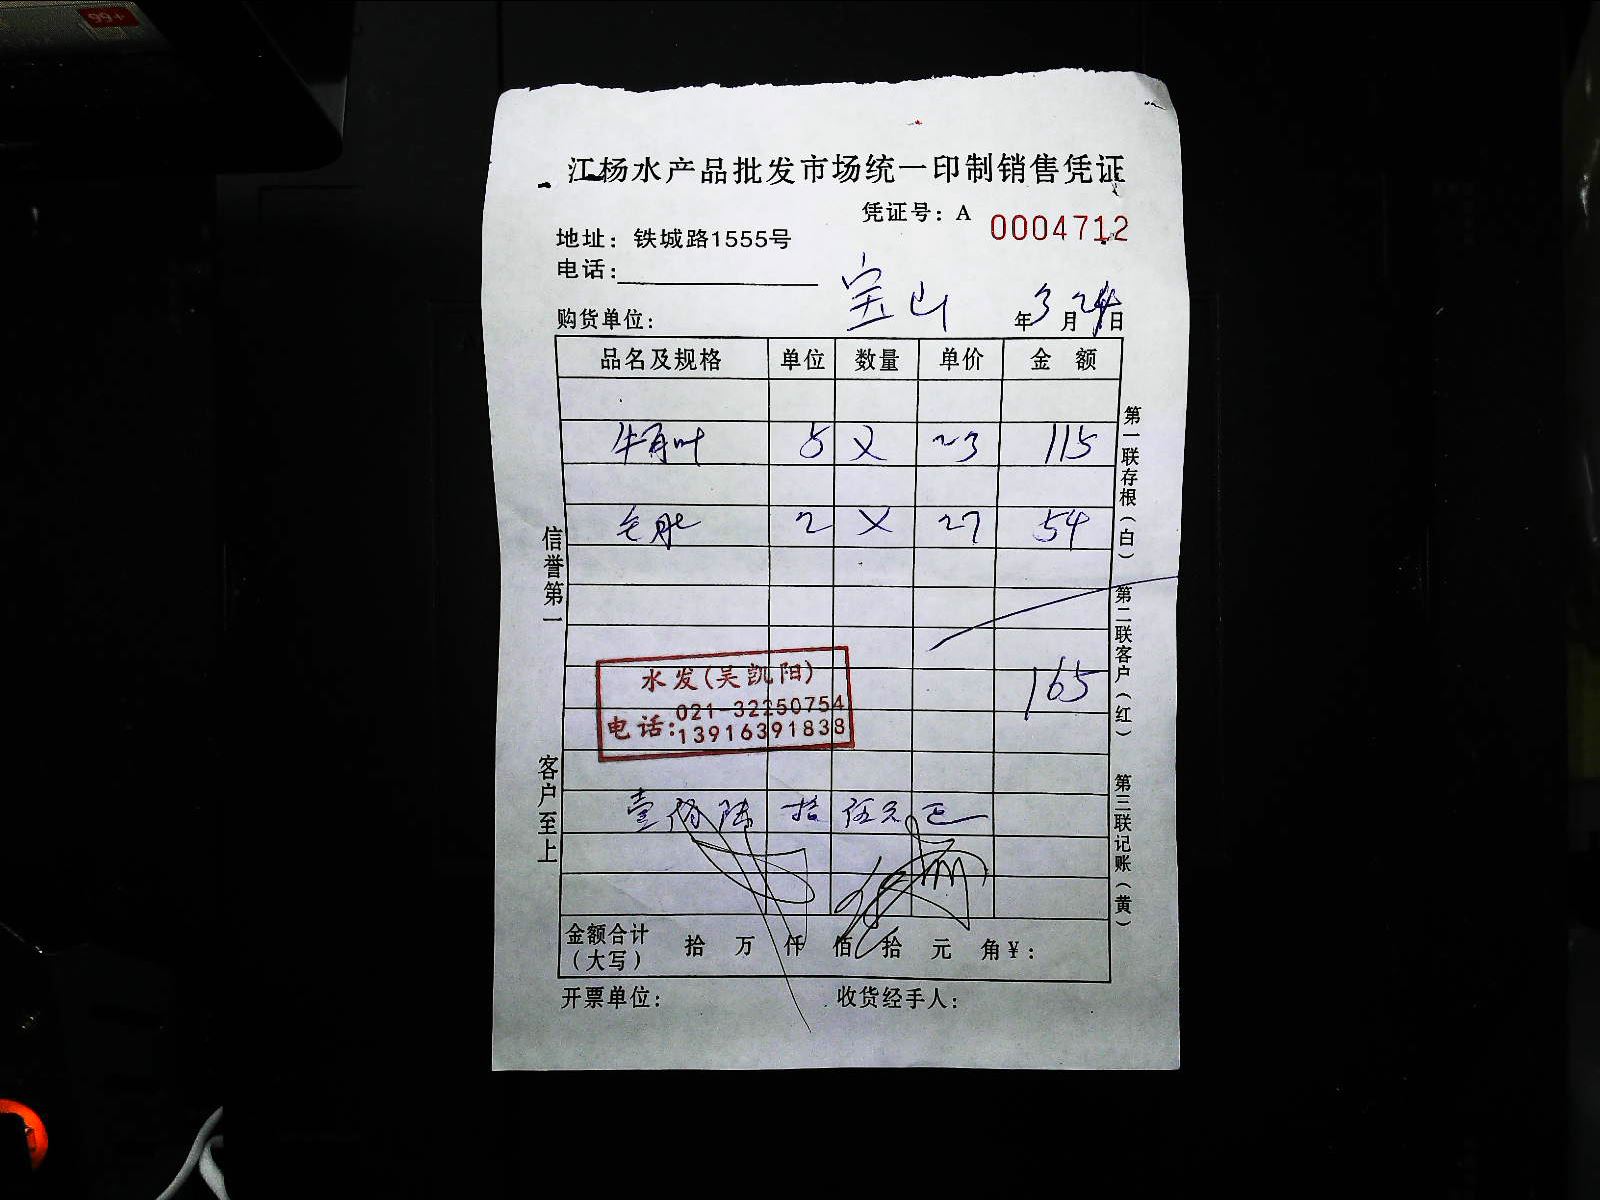 99+
江杨水产品批发市场统一印制销售凭证
凭证号：A 0004712
地址：铁城路1555号
电话：
宝山
购货单位： 年3月24日
品名及规格 单位 数量 单价 金额
牛百叶 5 × 23 115
毛肚 2 × 27 54
165
水发(吴凯阳)
电话：021-32250754
13916391838
壹佰陆拾伍元正
金额合计（大写） 拾 万 仟 佰 拾 元 角 ¥：
开票单位： 收货经手人：
信誉第一
客户至上
第一联存根（白）
第二联客户（红）
第三联记账（黄）